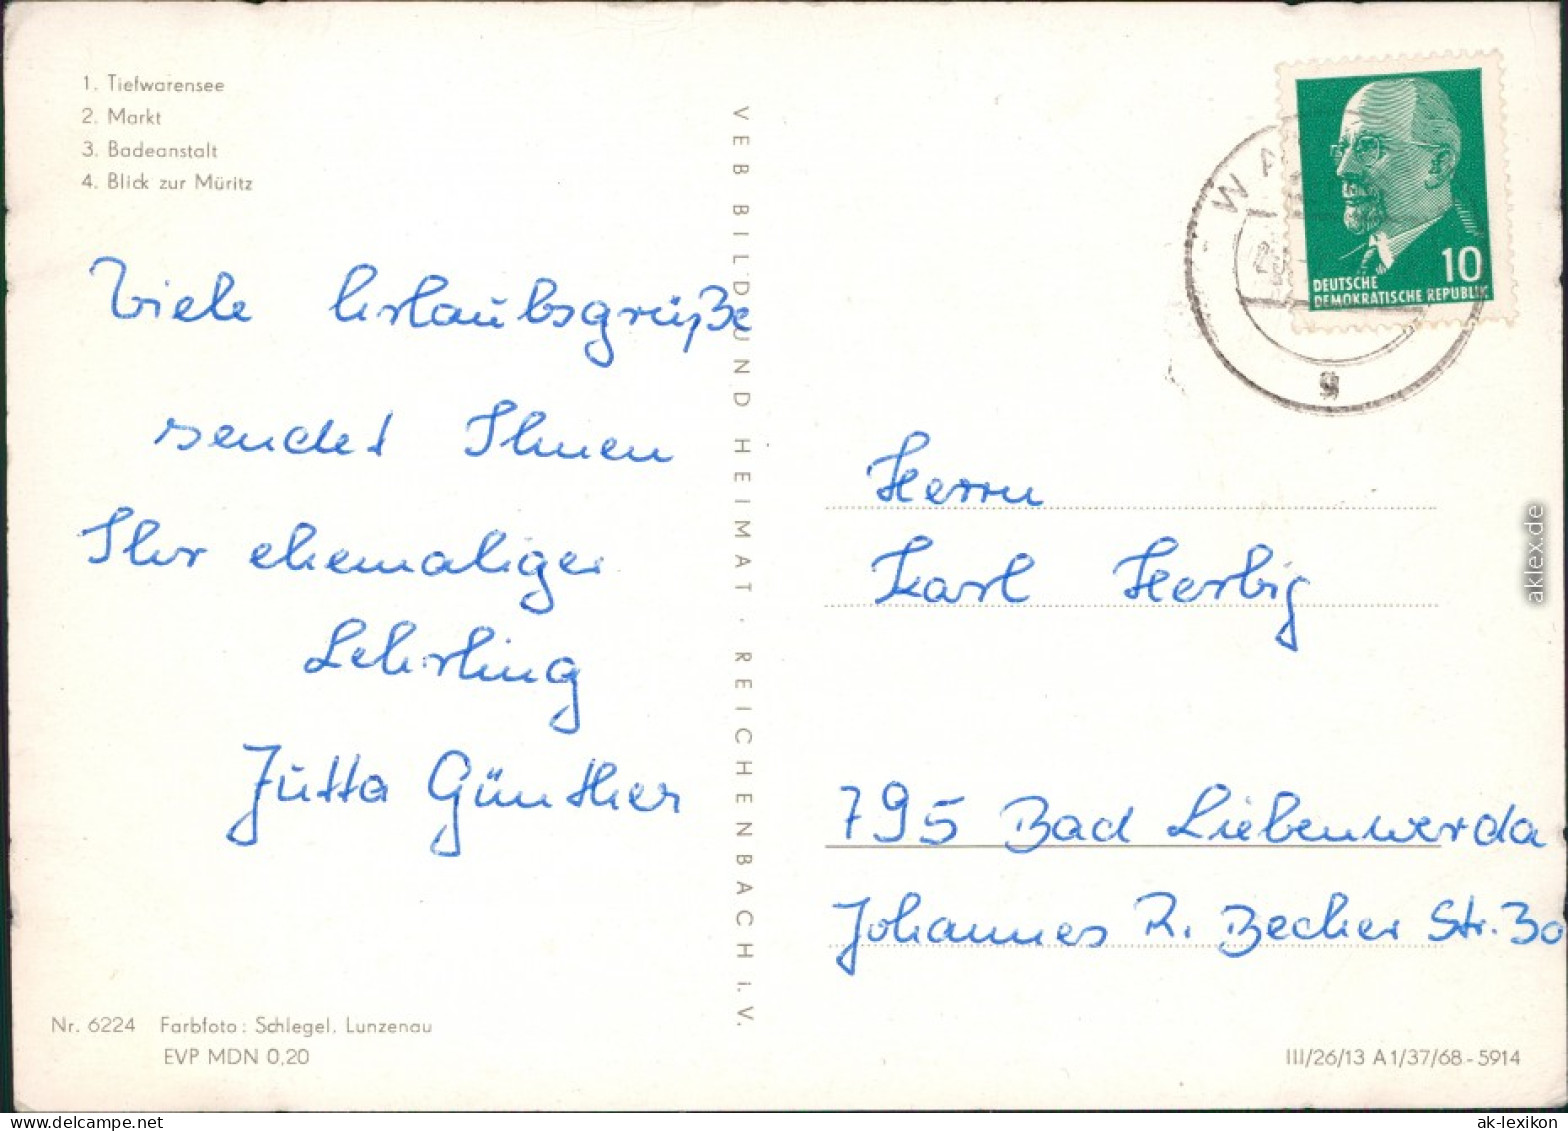 1. Tiefwarensee
2. Markt
3. Badeanstalt
4. Blick zur Müritz
Viele Urlaubsgrüße
sendet Ihnen
Ihr ehemaliger
Lehrling
Jutta Günther
Nr. 6224 Farbfoto: Schlegel, Lunzenau
EVP MDN 0,20
VEB BILD UND HEIMAT · REICHENBACH I. V.
10
DEUTSCHE
DEMOKRATISCHE REPUBLIK
g
Herrn
Karl Herbig
795 Bad Liebenwerda
Johannes R. Becher Str. 30
III/26/13 A 1/37/68 - 5914
aklex.de
ak-lexikon